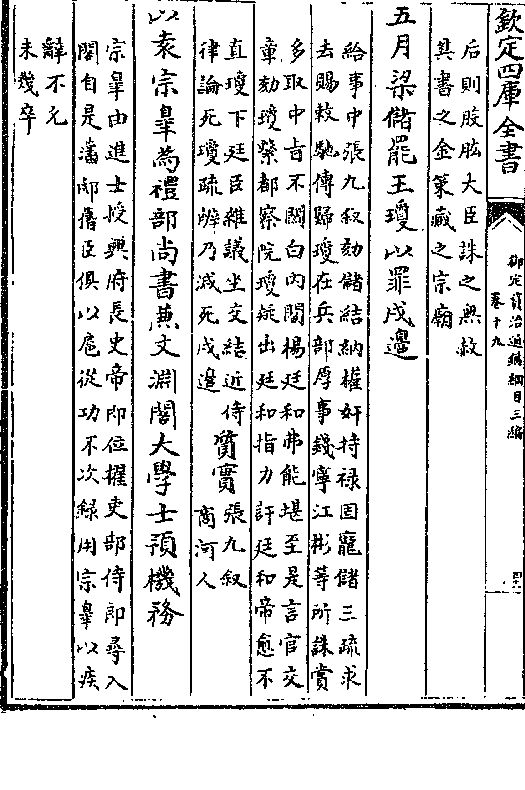 欽定四庫全書
御定資治通鑑綱目三編
卷十九
后則股肱大臣誅之無赦
具書之金策藏之宗廟
五月梁儲罷王瓊以罪戍邊
給事中張九叙劾儲結納權奸持禄固寵儲三疏求
去賜敕馳傳歸瓊在兵部厚事錢寧江彬等所誅賞
多取中旨不關白内閣楊廷和弗能堪至是言官交
章劾瓊繫都察院瓊疑出廷和指力訐廷和帝愈不
直瓊下廷臣雜議坐交結近侍
律論死瓊疏辨乃减死戍邊
質實
張九叙
商河人
以袁宗臯為禮部尚書兼文淵閣大學士預機務
宗臯由進士授興府長史帝即位擢吏部侍郎尋入
閣自是藩邸舊臣俱以扈從功不次録用宗臯以疾
辭不允
未幾卒